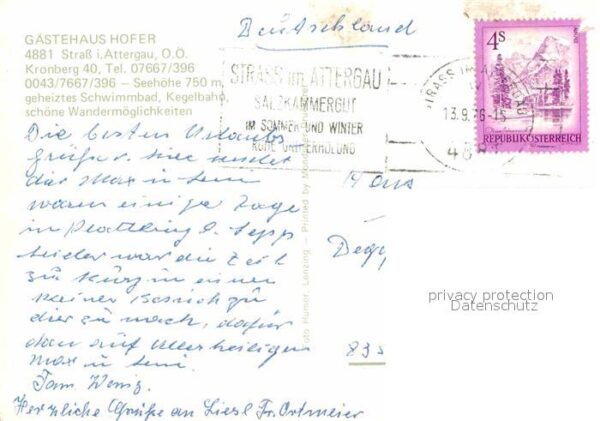 Deutschland
GÄSTEHAUS HOFER
4881 Straß i,Attergau, O.Ö.
Kronberg 40, Tel. 07667/396
0043/7667/396 — Seehöhe 750 m,
geheiztes Schwimmbad, Kegelbahn,
schöne Wandermöglichkeiten
STRASS IM ATTERGAU
SALZKAMMERGUT
IM SOMMER UND WINTER
RUHE UND ERHOLUNG
STRASS IM ATTERGAU
13.9.
4881
4S
REPUBLIK ÖSTERREICH
Die besten Urlaubs
Grüße v. hier sendet
dir Max u
waren einige Tage
in Plattling b. Sepp
leider war die Zeit
zu kurz in einen
Besuch zu
dir zu mach, dafür
dan auf Allerheiligen
Max u
Fam
Herzliche Grüße an Liesl Fr. Ortmeier
Haus
Degg
835
Foto Humer, Lenzing — Printed by
privacy protection
Datenschutz